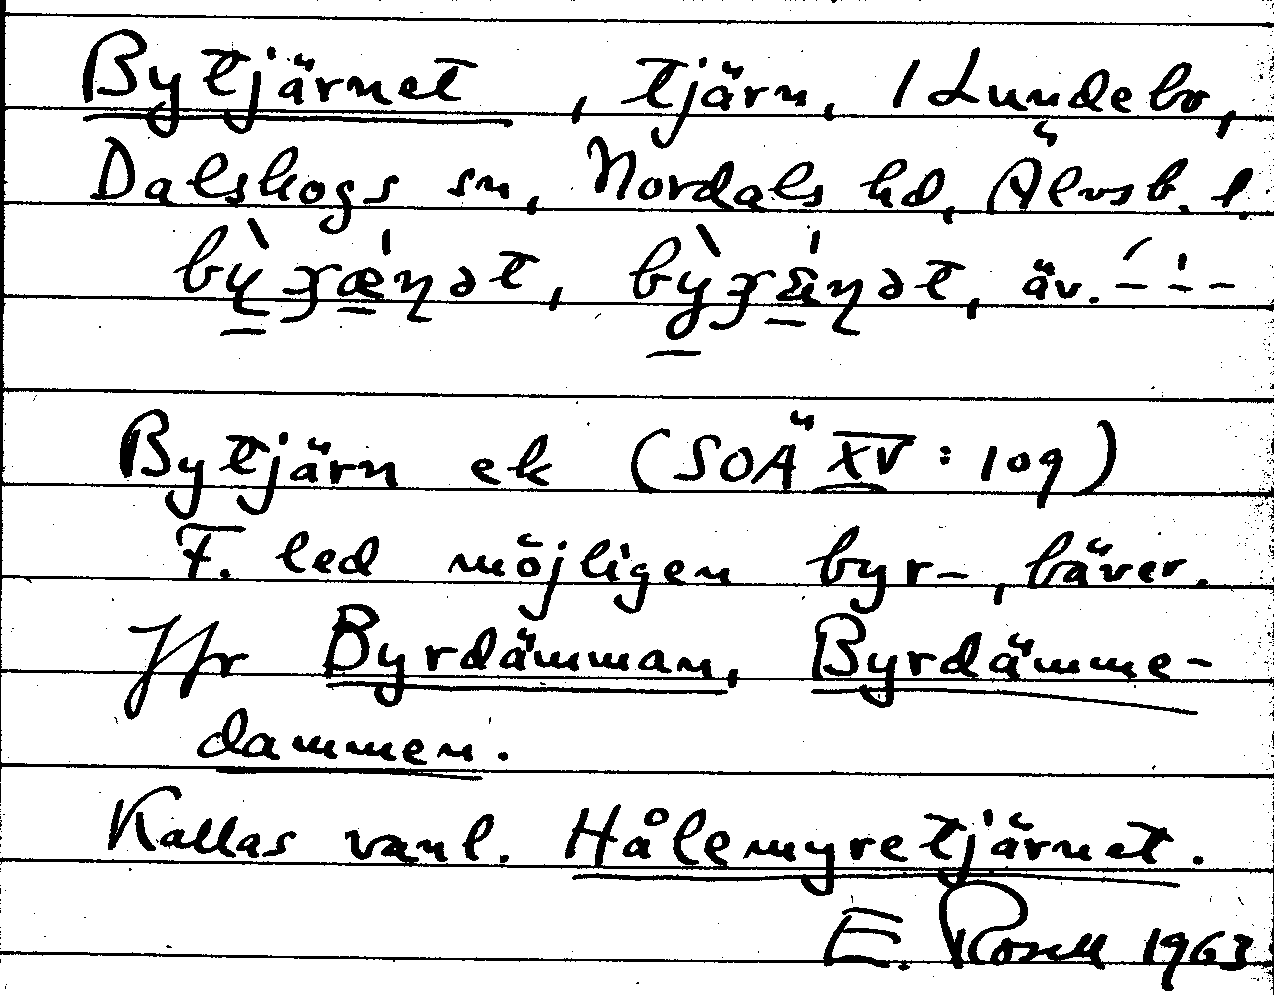 Bytjärnet, tjärn, 1 Lundebo,
Dalskogs sn, Nordals hd, Älvsb. l.
äv. -́ -̍ -
Bytjärn ek (SOÄ XV: 109)
F. led möjligen byr-, bäver.
Jfr Byrdämman, Byrdämme-
dammen.
Kallas vanl. Hålemyretjärnet.
E. Rosell 1963